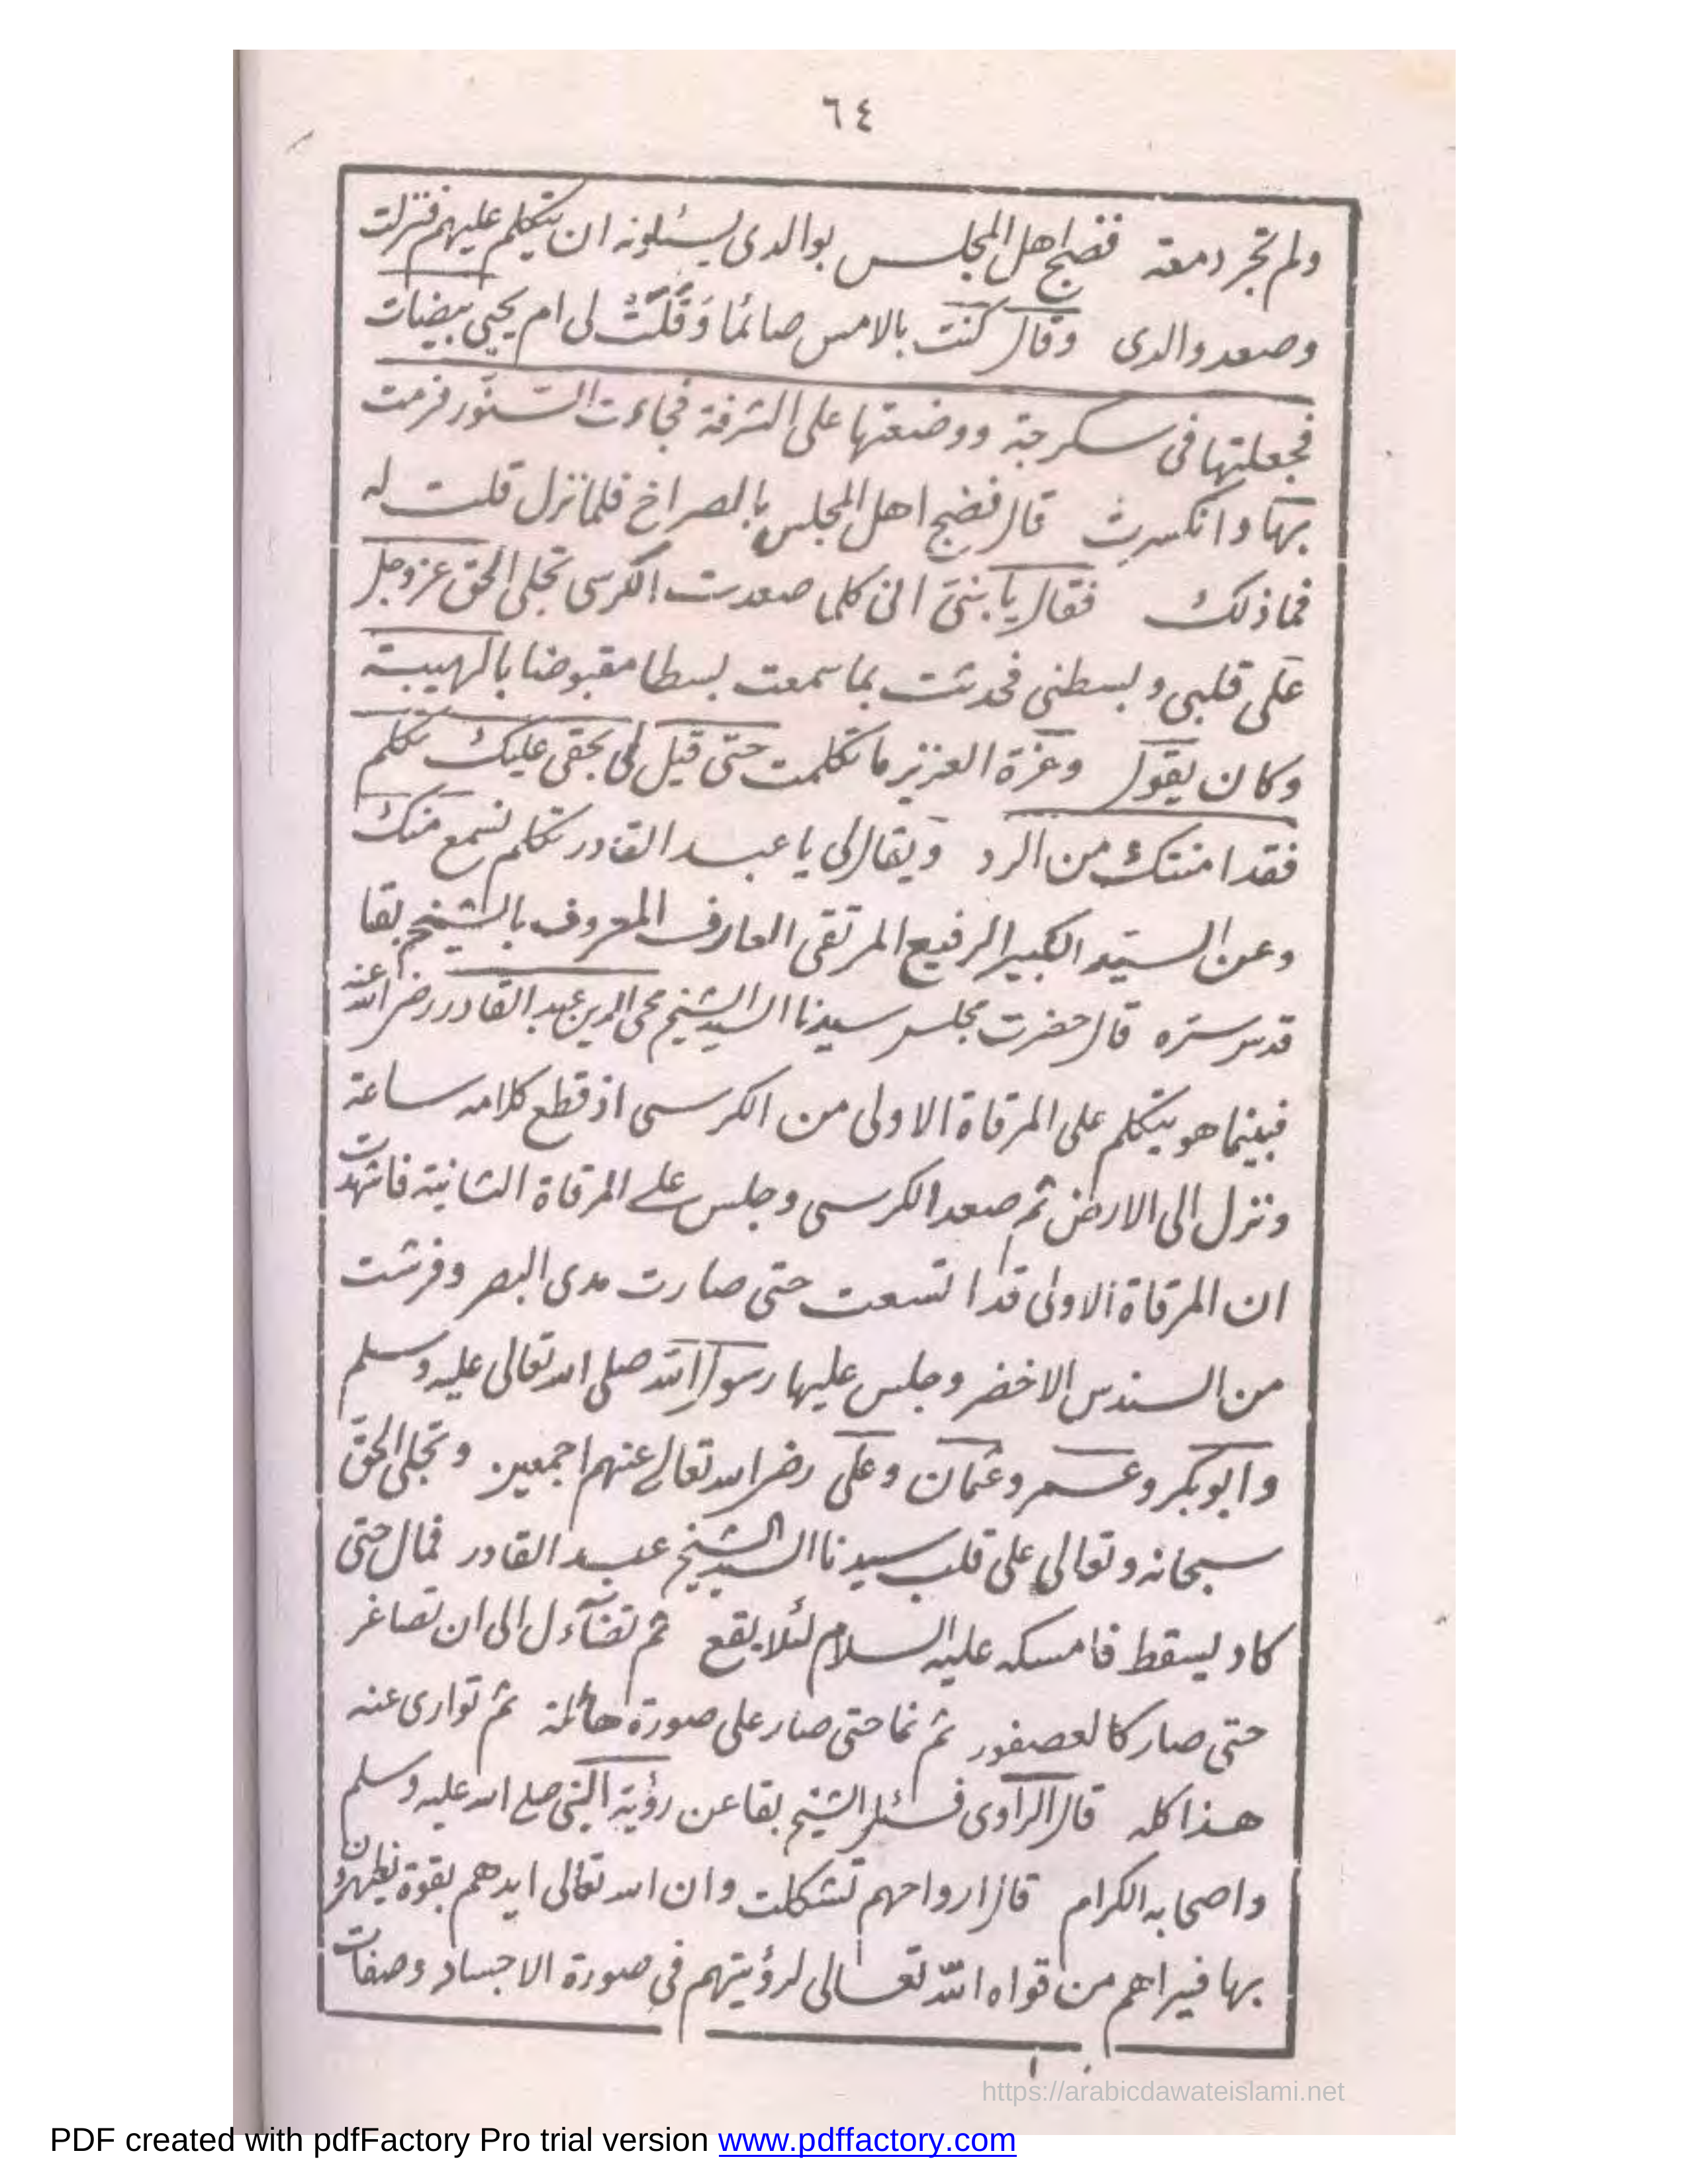 ٦٤
ولم تجر دمعة فضج اهل المجلس بوالدى يسئلونه ان يتكلم عليهم فنزلت
وصعد والدى وقال كنت بالامس صائما وَقَلَتْ لى ام يحيى بيضات
فجعلتها فى سكرجة ووضعتها على الشرفة فجاءت السنّور فرمت
بها وانكسرت قال فضج اهل المجلس بالصراخ فلما نزل قلت له
فما ذلك فقال يا بنىّ انى كلما صعدت الكرسى تجلى الحق عز وجل
على قلبى وبسطنى فحدثت بما سمعت بسطا مقبوضا بالهيبة
وكان يقول وعزة العزيز ما تكلمت حتى قيل لى بحقى عليك تكلم
فقد امنتك من الرد ويقال لى يا عبد القادر تكلم نسمع منك
وعن السيّد الكبير الرفيع المرتقى العارف المعروف بالشيخ بقا
قدس سره قال حضرت مجلس سيدنا السيد الشيخ محى الدين عبد القادر رضى الله عنه
فبينما هو يتكلم على المرقاة الاولى من الكرسى اذ قطع كلامه ساعة
ونزل الى الارض ثم صعد الكرسى وجلس على المرقاة الثانية فاشهدت
ان المرقاة الاولى قد اتسعت حتى صارت مدى البصر وفرشت
من السندس الاخضر وجلس عليها رسول الله صلى الله تعالى عليه وسلم
وابو بكر وعمر وعثمان وعلى رضى الله تعالى عنهم اجمعين وتجلى الحق
سبحانه وتعالى على قلب سيدنا السيد الشيخ عبد القادر فمال حتى
كاد يسقط فامسكه عليه السلام لئلا يقع ثم تضآءل الى ان تصاغر
حتى صار كالعصفور ثم نما حتى صار على صورة هائلة ثم توارى عنه
هذا كله قال الراوى فسئل الشيخ بقا عن رؤية النبى صلى الله عليه وسلم
واصحابه الكرام قال ارواحهم تشكلت وان الله تعالى ايدهم بقوة يظهرون
بها فيراهم من قواه الله تعالى لرؤيتهم فى صورة الاجساد وصفات
https://arabicdawateislami.net
PDF created with pdfFactory Pro trial version www.pdffactory.com